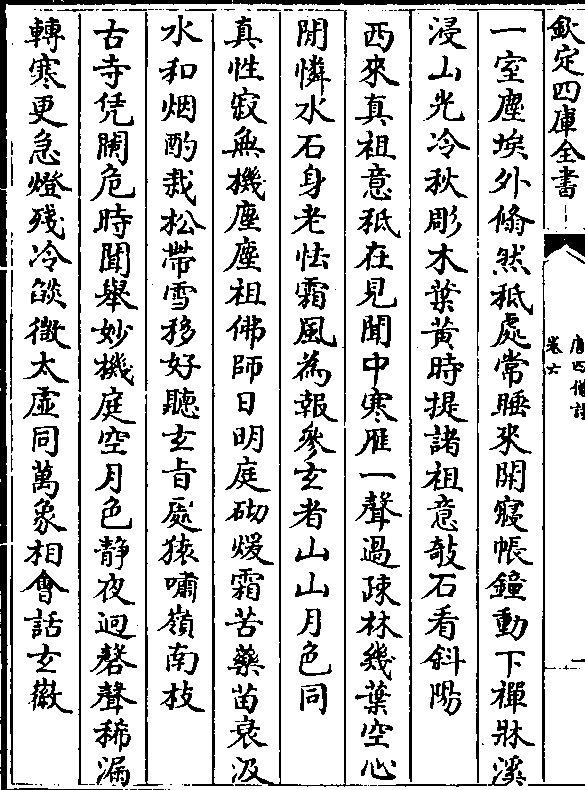 欽定四庫全書
唐四僧詩
卷六
一室塵埃外翛然秪處常睡來開寢帳鐘動下禪牀溪
浸山光冷秋彫木葉黃時提諸祖意攲石看斜陽
西來真祖意秪在見聞中寒雁一聲過疎林幾葉空心
閒憐水石身老怯霜風為報參玄者山山月色同
真性寂無機塵塵祖佛師日明庭砌煖霜苦藥苗衰汲
水和烟酌栽松帶雪移好聽玄旨處猿嘯嶺南枝
古寺凭闌危時聞舉妙機庭空月色靜夜迥磬聲稀漏
轉寒更急燈殘冷燄微太虛同萬象相會話玄徽